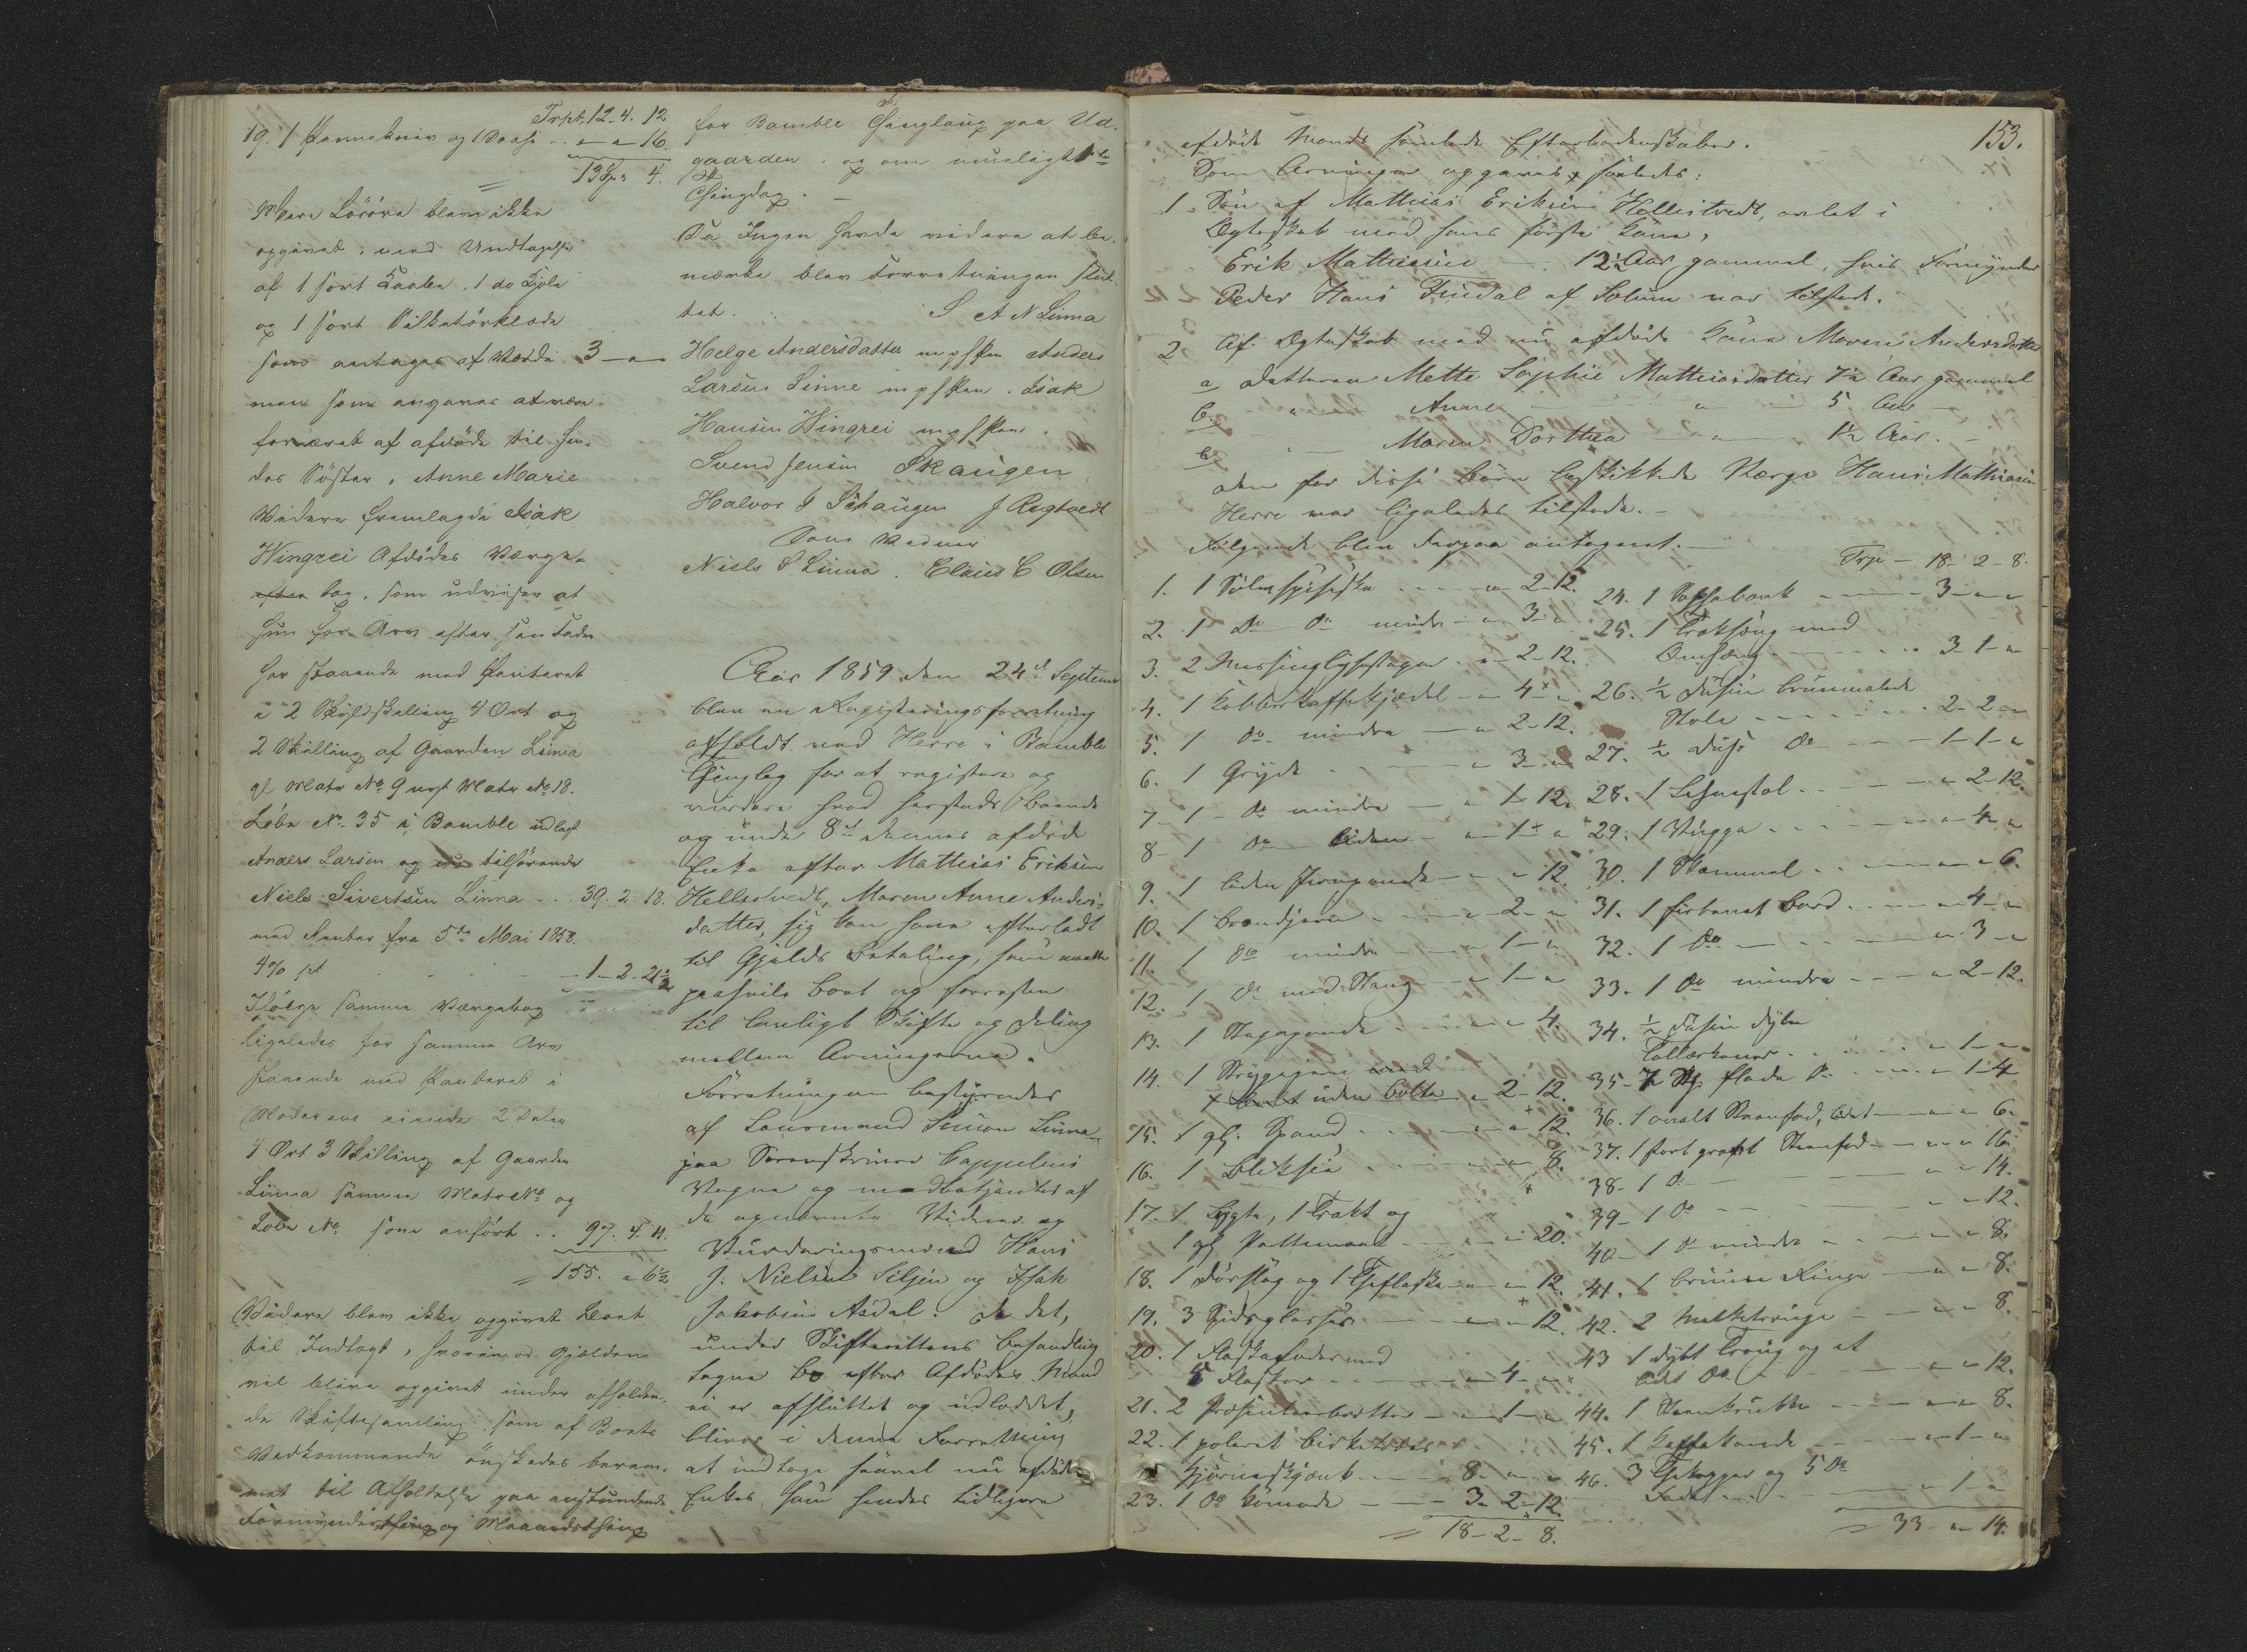 Trspt. 12. 4. 12
19. 1 Pennekniv og 1 Daase .. " " 16.
= 13 Spd " 4.
Mere Løsøre blev ikke
opgivet, med Undtagelse
af 1 sort Kaabe, 1 do Kjole
og 1 sort Silketørklæde
som antages af Værdi 3 " "
men som angaves at være
foræret af afdøde til hen-
des Søster, Anne Marie
Videre fremlagde Isak
Wingrei Afdødes Værge-
bog, som udviser at
hun for Arv efter sin Fader
har staaende med Panteret
i 2 Skyldskilling 4 Ort og
2 Skilling af Gaarden Linna
gl Matr No 9 nyt Matr No 18.
Løbe No 35 i Bamble udlagt
Anders Larsen og nu tilhørende
Niels Sivertsen Linna .. 39. 2. 18.
med Renter fra 5te Mai 1858.
4% pt - 1 - 2. 21½
Ifølge samme Værgebog
ligeledes for samme Arv
staaende med Panteret i
Moderens eiende 2 Daler
4 Ort 3 Skilling af Gaarden
Linna samme Matr No og
Løbe No som anført .. 97. 4. 11.
= 155. " 6½
Videre blev ikke opgivet Boet
til Indtægt, hvorimod Gjælden
vil blive opgivet under afholden-
de Skiftesamling som af Boets
Vedkommende ønskedes beram-
met til Afholdelse paa anstundende
Formynderthing og Maanedsthing
for Bamble Thinglaug paa Ud-
gaarden, og om mueligt 1ste
Thingdag. -
Da Ingen havde videre at be-
mærke blev Forretningen slut-
tet. S A N Linna
Helge Andersdatter m p Pen Anders
Larsen Linne m p Pen. Isak
Hansen Wingrei m p Pen.
Svend Jensen Skaugen
Halvor J Schaugen J Rugtvedt
Som Vidner
Niels S Linna. Elias C Olsen
Aar 1859 den 24de Septembr
blev en Registreringsforretning
afholdt ved Herre i Bamble
Thinglag for at registrere og
vurdere hvad hersteds boende
og under 8de dennes afdøde
Enke efter Mathias Eriksen
Hellestvedt, Maren Anne Anders-
datter, sig kan have efterladt
til Gjælds Betaling, som maatte
paahvile Boet og forresten
til lovligt Skifte og Deling
mellem Arvingerne.
Forretningen bestyredes
af Lensmand Simon Linna
paa Sorenskriver Cappelens
Vegne og medbetjentes af
de opnævnte Vidner og
Vurderingsmænd Hans
J. Nielsen Siljen og Isak
Jakobsen Asdal. Da det,
under Skifterettens Behandling
tagne Bo efter Afdødes Mand
ei er afsluttet og udloddet,
bliver i denne Forretning
at indtage saavel nu afdøde
Enkes som hendes tidligere
153.
afdøde Mands samlede Efterladenskaber.
Som Arvinger opgaves saaledes:
1 Søn af Mathias Eriksen Hellestvedt, avlet i
Ægteskab med hans første Kone,
Erik Mathiesen - 12½ Aar gammel, hvis Formynder
Peder Hans Findal af Solum var tilstede.
2 Af Ægteskab med nu afdøde Kone Maren Andersdatter
a Datteren Mette Sophie Mathiasdatter 7½ Aar gammel
b. " Anne " 5 Aar -
c " Maren Dorthea " 1½ Aar. -
Den for disse Børn beskikkede Værge Hans Mathiesen
Herre var ligeledes tilstede. -
Følgende blev derpaa antegnet. -
1. 1 Sølvspiseske - " 2 - 12.
2. 1 Do Do mindre - " 3 - "
3. 2 Messinglysestager " 2 - 12.
4. 1 Kobberkaffekjedel - " 4 - "
5. 1 Do mindre - " 2 - 12.
6. 1 Gryde - " 3 - "
7 - 1 - Do mindre - " 1 - 12.
8 - 1 Do liden - " 1 - "
9. 1 liden Jernpande - " " 12.
10. 1 Brændjern - " 2 - "
11. 1 Do mindre - " 1 - "
12. 1 Do med Stang - " 1 - "
13. 1 Stegepande - " " 4.
14. 1 Strygejern
uden Bolte " 2 - 12.
15. 1 gl. Spand - " " 12.
16. 1 Bliksie " " 8.
17 - 1 Lygte, 1 Trakt og
1 gl Pottemaal - " " 20.
18. 1 Dørslag og 1 Theflaske " " 12.
19. 3 Spidsglasser - " " 12.
20. 1 Flaskefoder med
5 Flasker - " 4 - "
21. 2 Præsenteerbretter - " 1 - "
22. 1 poleret Birketræs
Hjørneskjænk - - 8 - " "
23. 1 Do Komode - - 3 - 2 - 12
= 18 - 2 - 8.
Trsp - 18 - 2 - 8.
24. 1 Sophabænk - 3 - " - "
25. 1 Træksæng med
Omhæng - 3 - 1 - "
26. ½ Dusin brunmalede
Stole - 2 - 2 - "
27. ½ Dusi Do - 1 - 1 - "
28. 1 Lehnestol - " 2 - 12.
29. 1 Vugge - " 4 - "
30. 1 Skammel - " " 6.
31. 1 firbenet Bord - " 4 - "
32. 1 Do - " 3 - "
33. 1 Do mindre - " 2 - 12.
34. ½ Dusin dybe
Tallerkener - " 1 - "
35 - 7 St flade Do - " 1 - 4
36. 1 ovalt Steenfad, lidet - " " 6.
37. 1 stort Steenfad - " " 16
38 - 1 Do - " " 14.
39 - 1 Do - " " 12.
40 - 1 Do mindre - " " 8.
41. 1 brun Ringe - " " 8.
42. 2 Melketrouge - " " 8.
43 1 dybt Troug og et
lidet Do - " " 12.
44. 1 Steenkrukke - " " 8.
45. 1 Kaffekande - " 1 - "
46. 3 Thekopper og 5 Do
Fade - " 1 - "
= 33 - " 14.